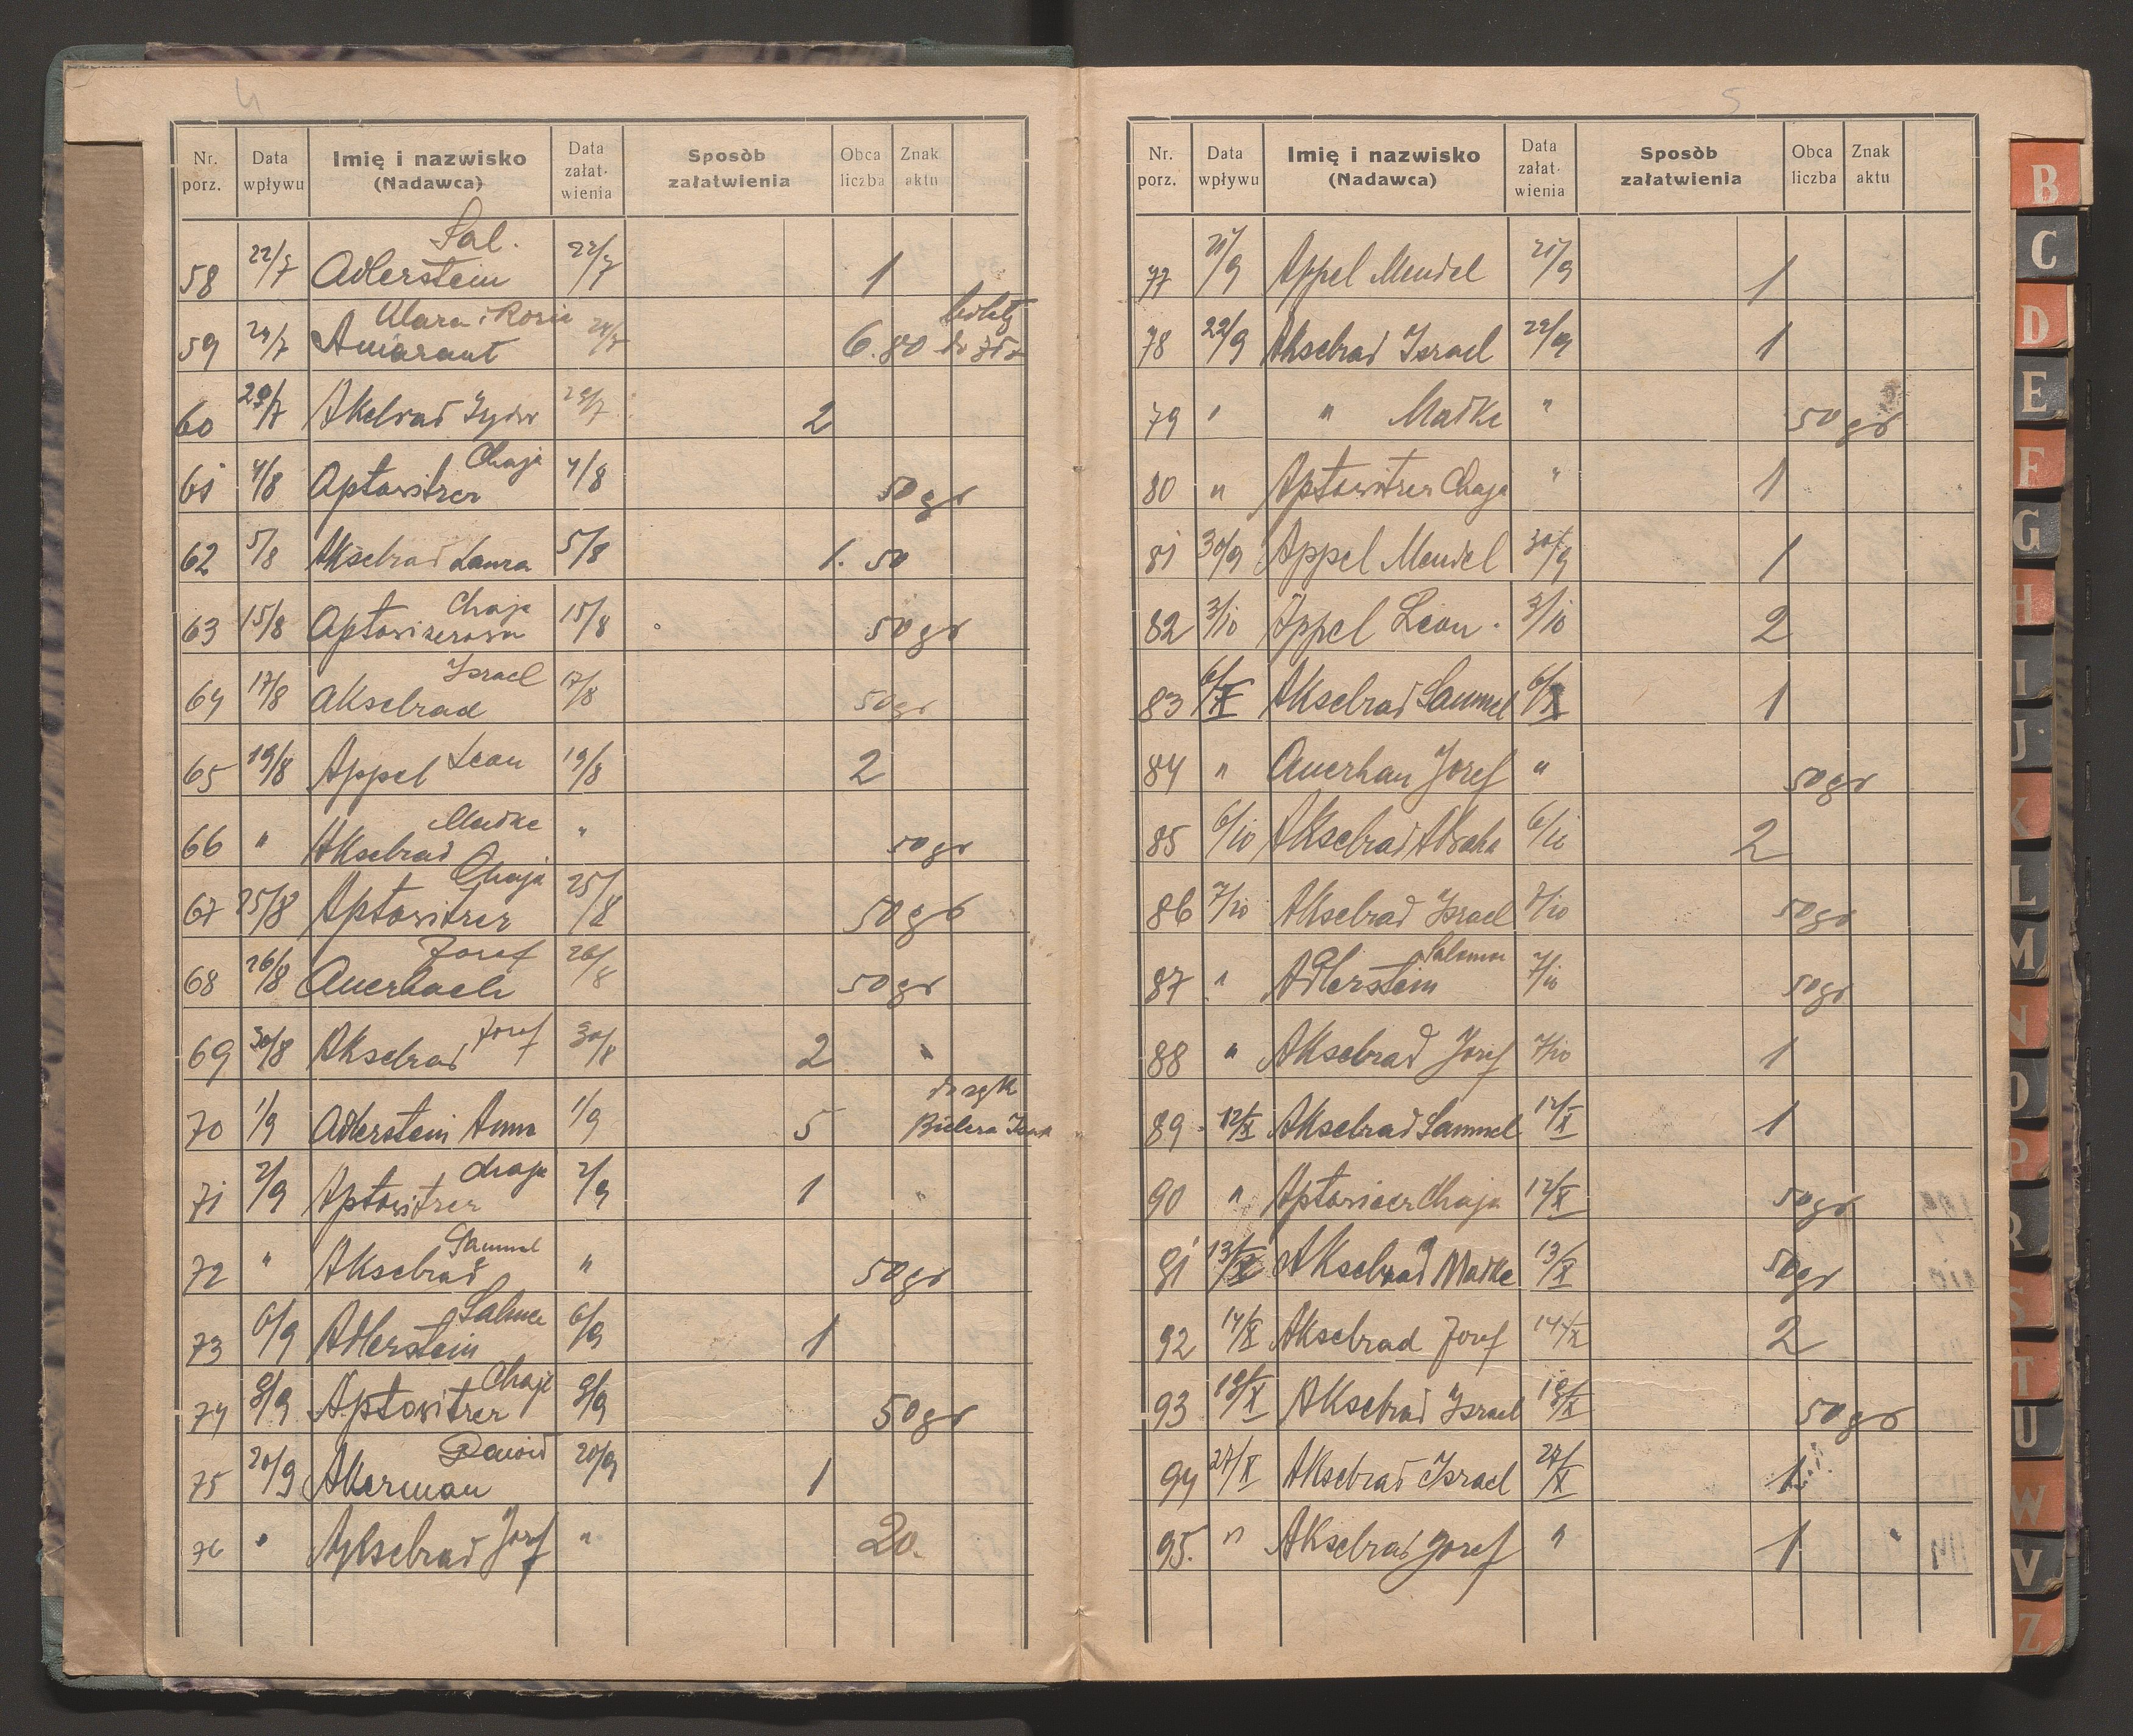 4
Nr. porz. Data wpływu Imię i nazwisko (Nadawca) Data załat- wienia Sposòb załatwienia Obca liczba Znak aktu
Sal.
58 22/7 Adlerstein 22/7 1
Klara i Rosia
59 24/7 Amarant 24/7 6.80
60 29/7 Akselrad Izydor 29/7 2
Chaja
61 4/8 Aptowitzer 4/8 50 gr
62 5/8 Akselrad Laura 5/8 1. 50
Chaja
63 15/8 Aptowizerowa 15/8 50 gr
Israel
64 17/8 Akselrad 17/8 50 gr
65 19/8 Appel Leon 19/8 2
Madke
66 " Akselrad " 50 gr
Chaja
67 25/8 Aptowitzer 25/8 50 gr
Josef
68 26/8 Auerbach 26/8 50 gr
69 30/8 Akselrad Josef 30/8 2
70 1/9 Adlerstein Anna 1/9 5
Chaja
71 2/9 Aptowitzer 2/9 1
Samuel
72 " Akselrad " 50 gr
73 6/9 Adlerstein 6/9 1
Chaja
74 8/9 Aptowitzer 8/9 50 gr
Dawid
75 20/9 Akerman 20/9 1
76 " Akselrad Josef " 20.
5
Nr. porz. Data wpływu Imię i nazwisko (Nadawca) Data załat- wienia Sposòb załatwienia Obca liczba Znak aktu
77 21/9 Appel Mendel 21/9 1
78 22/9 Akselrad Israel 22/9 1
79 " " Madke " 50 gr
80 " Aptowitzer Chaja " 1
81 30/9 Appel Mendel 30/9 1
82 3/10 Appel Leon 3/10 2
83 6/X Akselrad Samuel 6/X 1
84 " Auerhan Josef " 50 gr
85 6/10 Akselrad 6/10 2
86 7/10 Akselrad Israel 7/10 50 gr
Salomon
87 " Adlerstein 7/10 50 gr
88 " Akselrad Josef 7/10 1
89 12/X Akselrad Samuel 12/X 1
90 " Aptowicer Chaja 12/X 50 gr
91 13/X Akselrad Madke 13/X 50 gr
92 14/X Akselrad Josef 14/X 2
93 18/X Akselrad Israel 18/X 50 gr
94 27/X Akselrad Israel 27/X 1
95. " Akselrad Josef " 1
B
C
D
E
F
G
H
I
J
K
L
M
N
O
P
R
S
T
U
W
V
Z